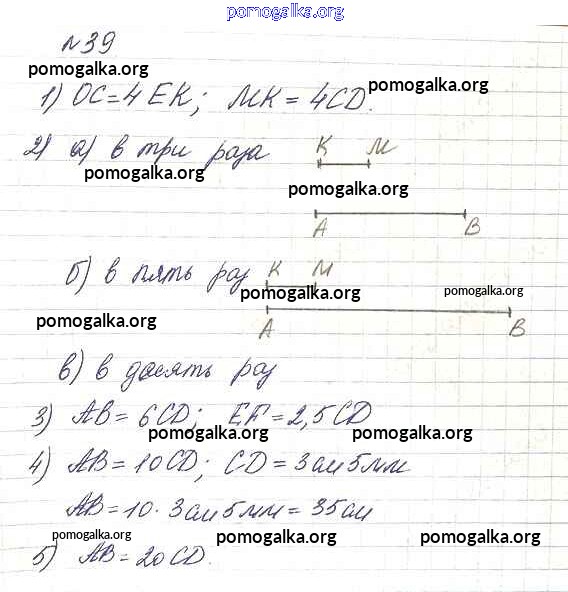 pomogalka.org
№39
pomogalka.org
1) ОС=4 ЕК; МК = 4CD.
pomogalka.org
2) а) в три раза К М
pomogalka.org
pomogalka.org
А В
б) в пять раз К М
pomogalka.org
pomogalka.org
pomogalka.org
А В
в) в десять раз
3) АВ = 6CD; EF = 2,5CD
pomogalka.org
pomogalka.org
4) АВ = 10CD; CD = 3см5мм
АВ = 10·3см5мм = 35см
pomogalka.org
pomogalka.org
pomogalka.org
5) АВ = 20CD.